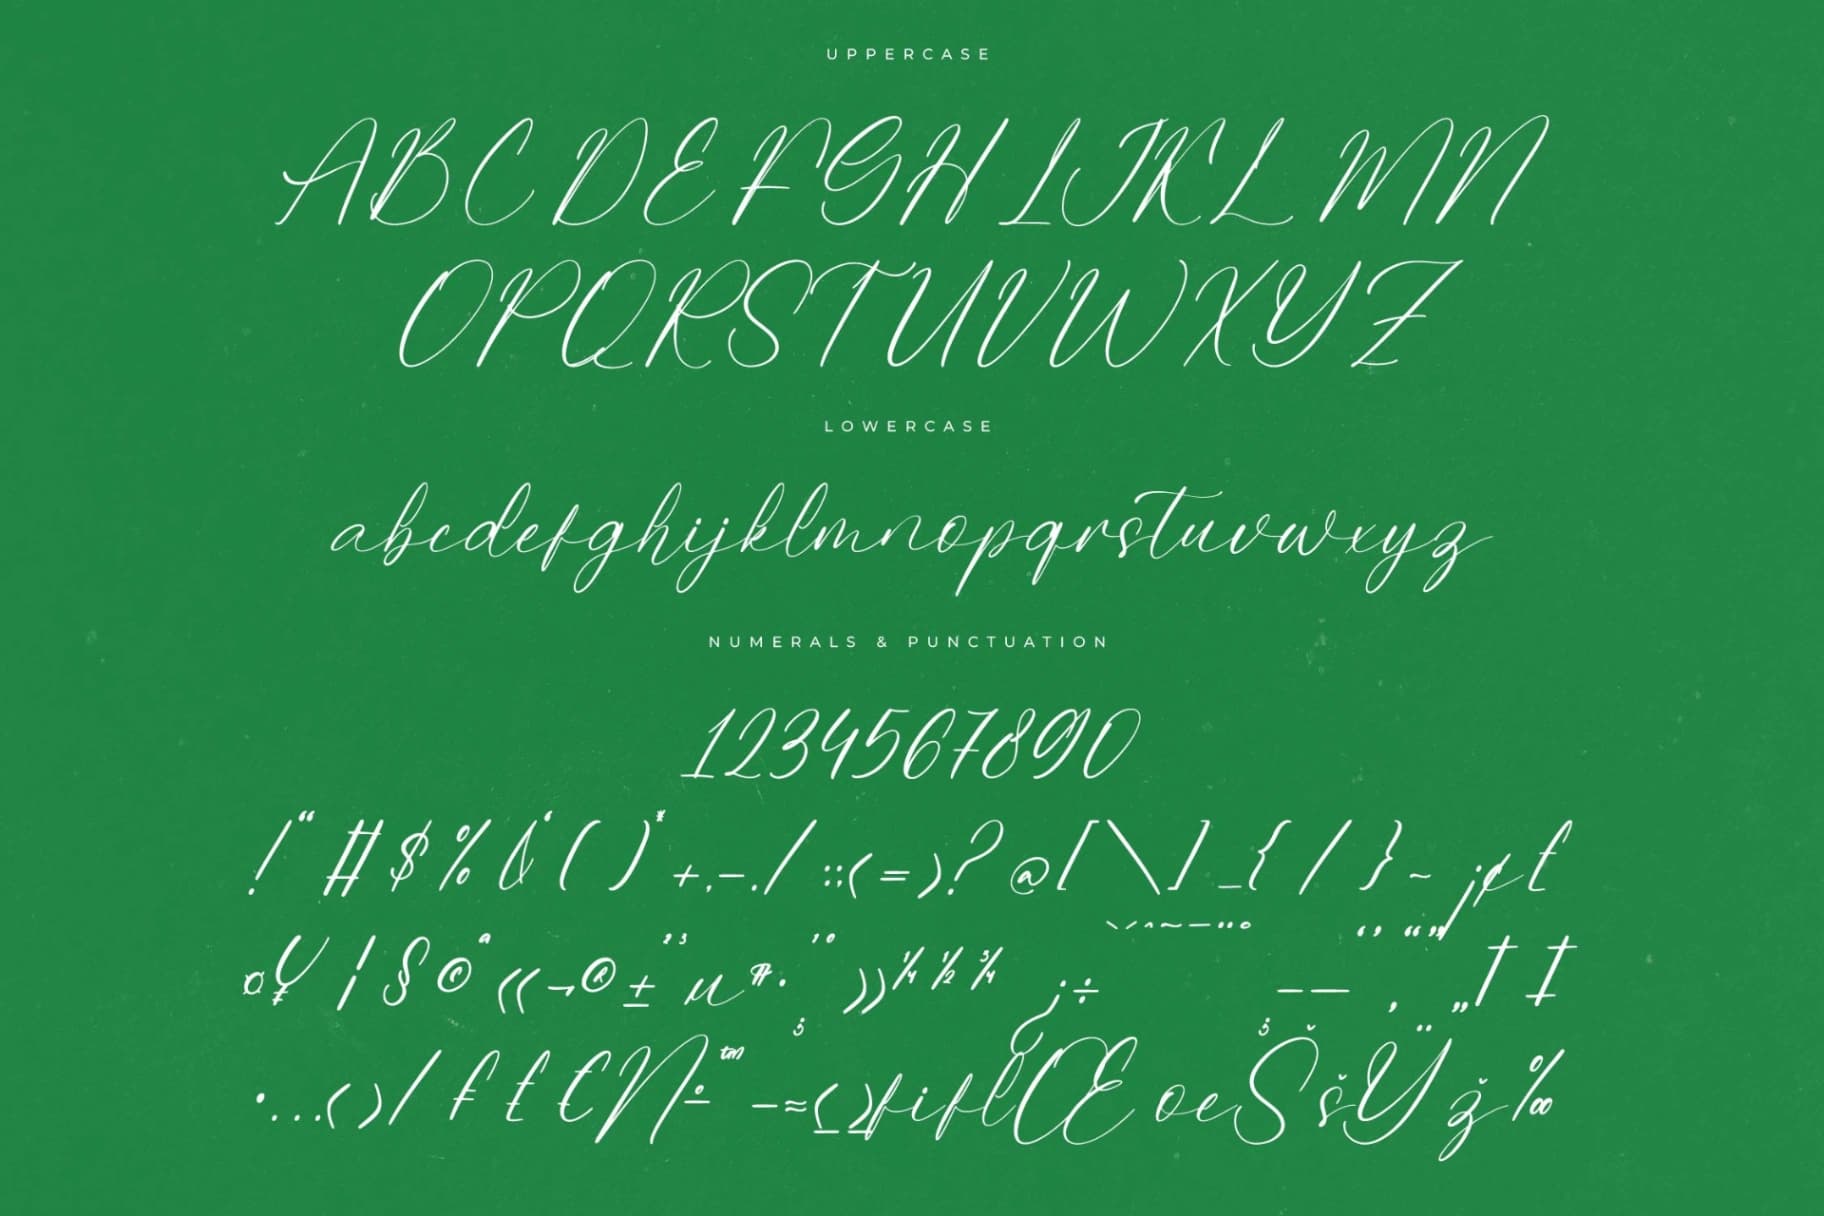 UPPERCASE
ABCDEFGHIJKLMN
OPQRSTUVWXYZ
LOWERCASE
abcdefghijklmnopqrstuvwxyz
NUMERALS & PUNCTUATION
1234567890
!“#$%&‘()*+,-./:;<=>?@[\]_{/}~¡¢£
¤¥¦§©ª«¬®±²³µ¶·¹º»¼½¾¿÷––‚„†‡
•…‹›/₣₤€№™−≈≤≥fiflŒœŠšŸž‰